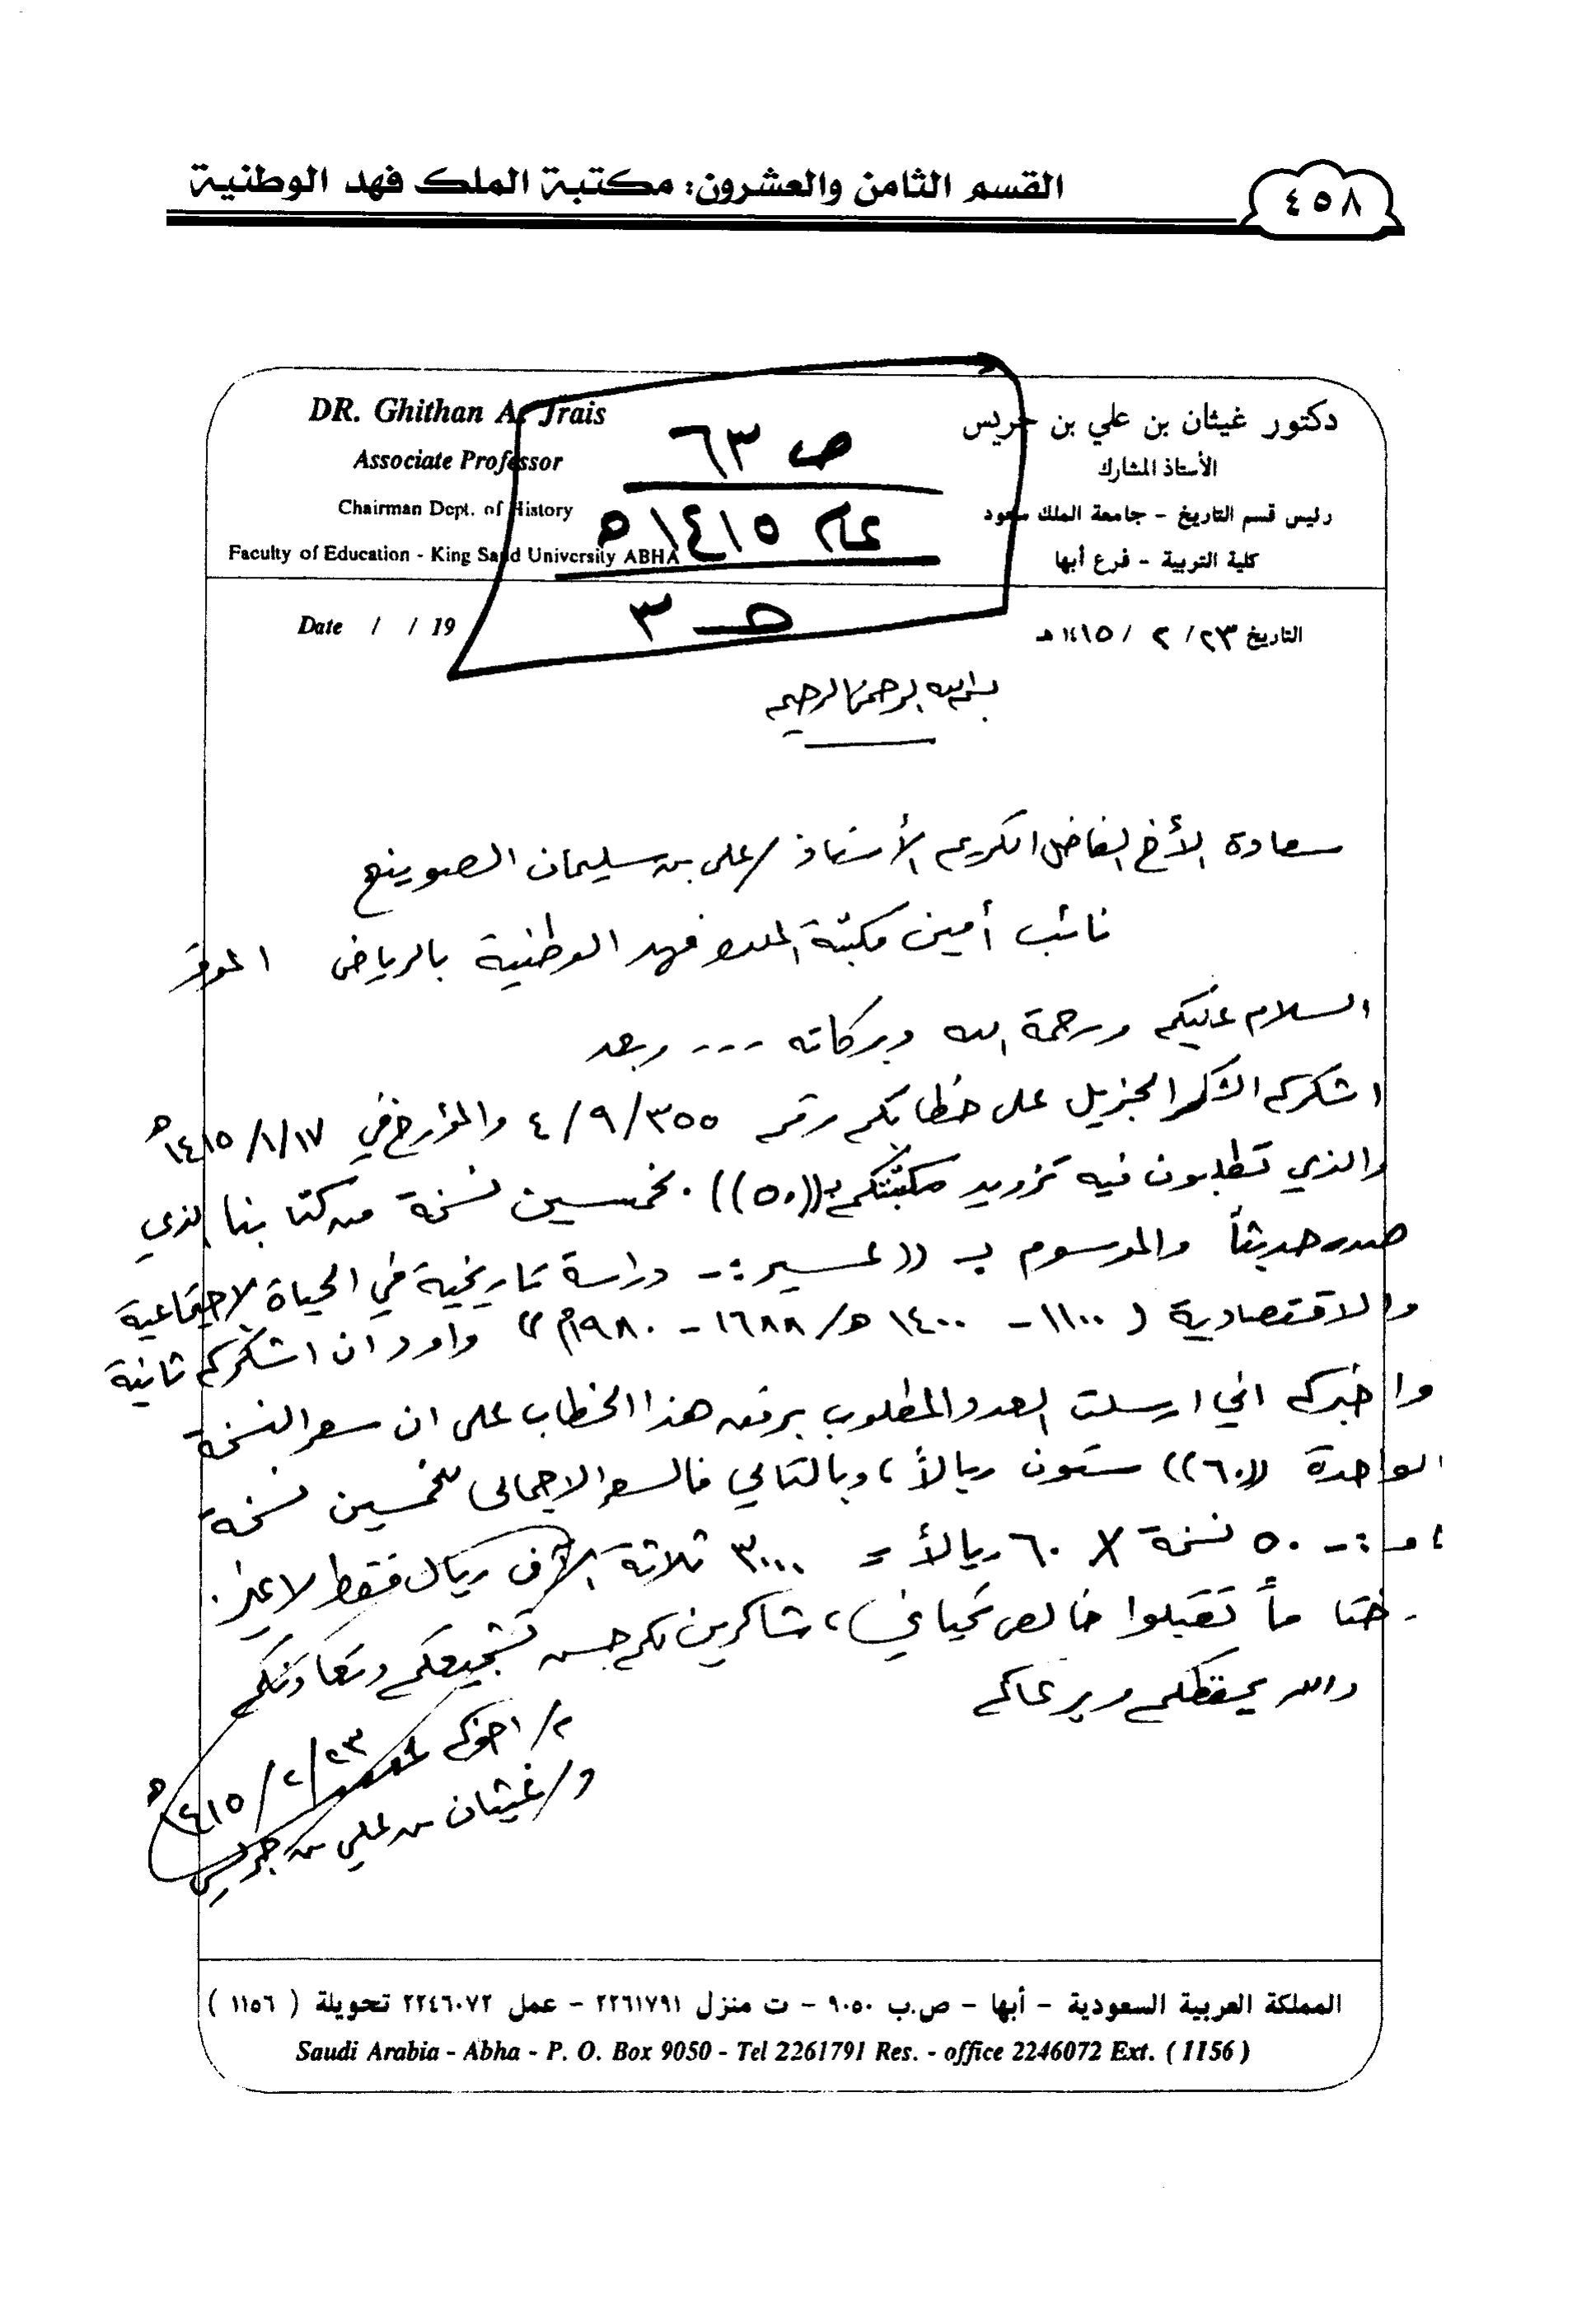 القسم الثامن والعشرون: مكتبة الملك فهد الوطنية
٤٥٨
DR. Ghithan A. Jrais
Associate Professor
Chairman Dept. of History
Faculty of Education - King Saud University ABHA
دكتور غيثان بن علي بن جريس
الأستاذ المشارك
رئيس قسم التاريخ - جامعة الملك سعود
كلية التربية - فرع أبها
ص ٦٣
عام ١٤١٥ه
حـ ٣
Date / / 19
التاريخ ٢٣/ ٢ / ١٤١٥هـ
بسم الله الرحمن الرحيم
سعادة الأخ الفاضل الكريم الأستاذ / علي بن سليمان الصوينع
نائب أمين مكتبة الملك فهد الوطنية بالرياض الموقر
السلام عليكم ورحمة الله وبركاته --- وبعد
اشكركم الشكر الجزيل على خطابكم رقم ٤/٩/٣٥٥ والمؤرخ في ١٤١٥/١/١٧ه
والذي تطلبون فيه تزويد مكتبتكم بـ((٥٠)) خمسين نسخة من كتابنا الذي
صدر حديثاً والموسوم بـ ((عسير :- دراسة تاريخية في الحياة الاجتماعية
والاقتصادية (١١٠٠ - ١٤٠٠ هـ/ ١٦٨٨ - ١٩٨٠م)) واود ان اشكركم ثانية
واخبركم اني ارسلت العدد المطلوب برفقه هذا الخطاب على ان سعر النسخة
الواحدة ((٦٠)) ستون ريالاً ، وبالتالي فالسعر الاجمالي للخمسين نسخة
هو :- ٥٠ نسخة X ٦٠ ريالاً = ٣٠٠٠ ثلاثة الآف ريال فقط لاغير .
- ختاماً تقبلوا خالص تحياتي ، شاكرين لكم حسن تشجيعكم وتعاونكم
والله يحفظكم ويرعاكم
/ اخوكم
١٤١٥/٢/٢٣ه
د/ غيثان بن علي بن جريس
المملكة العربية السعودية - أبها - ص.ب ٩٠٥٠ - ت منزل ٢٢٦١٧٩١ - عمل ٢٢٤٦٠٧٢ تحويلة ( ١١٥٦ )
Saudi Arabia - Abha - P. O. Box 9050 - Tel 2261791 Res. - office 2246072 Ext. ( 1156 )